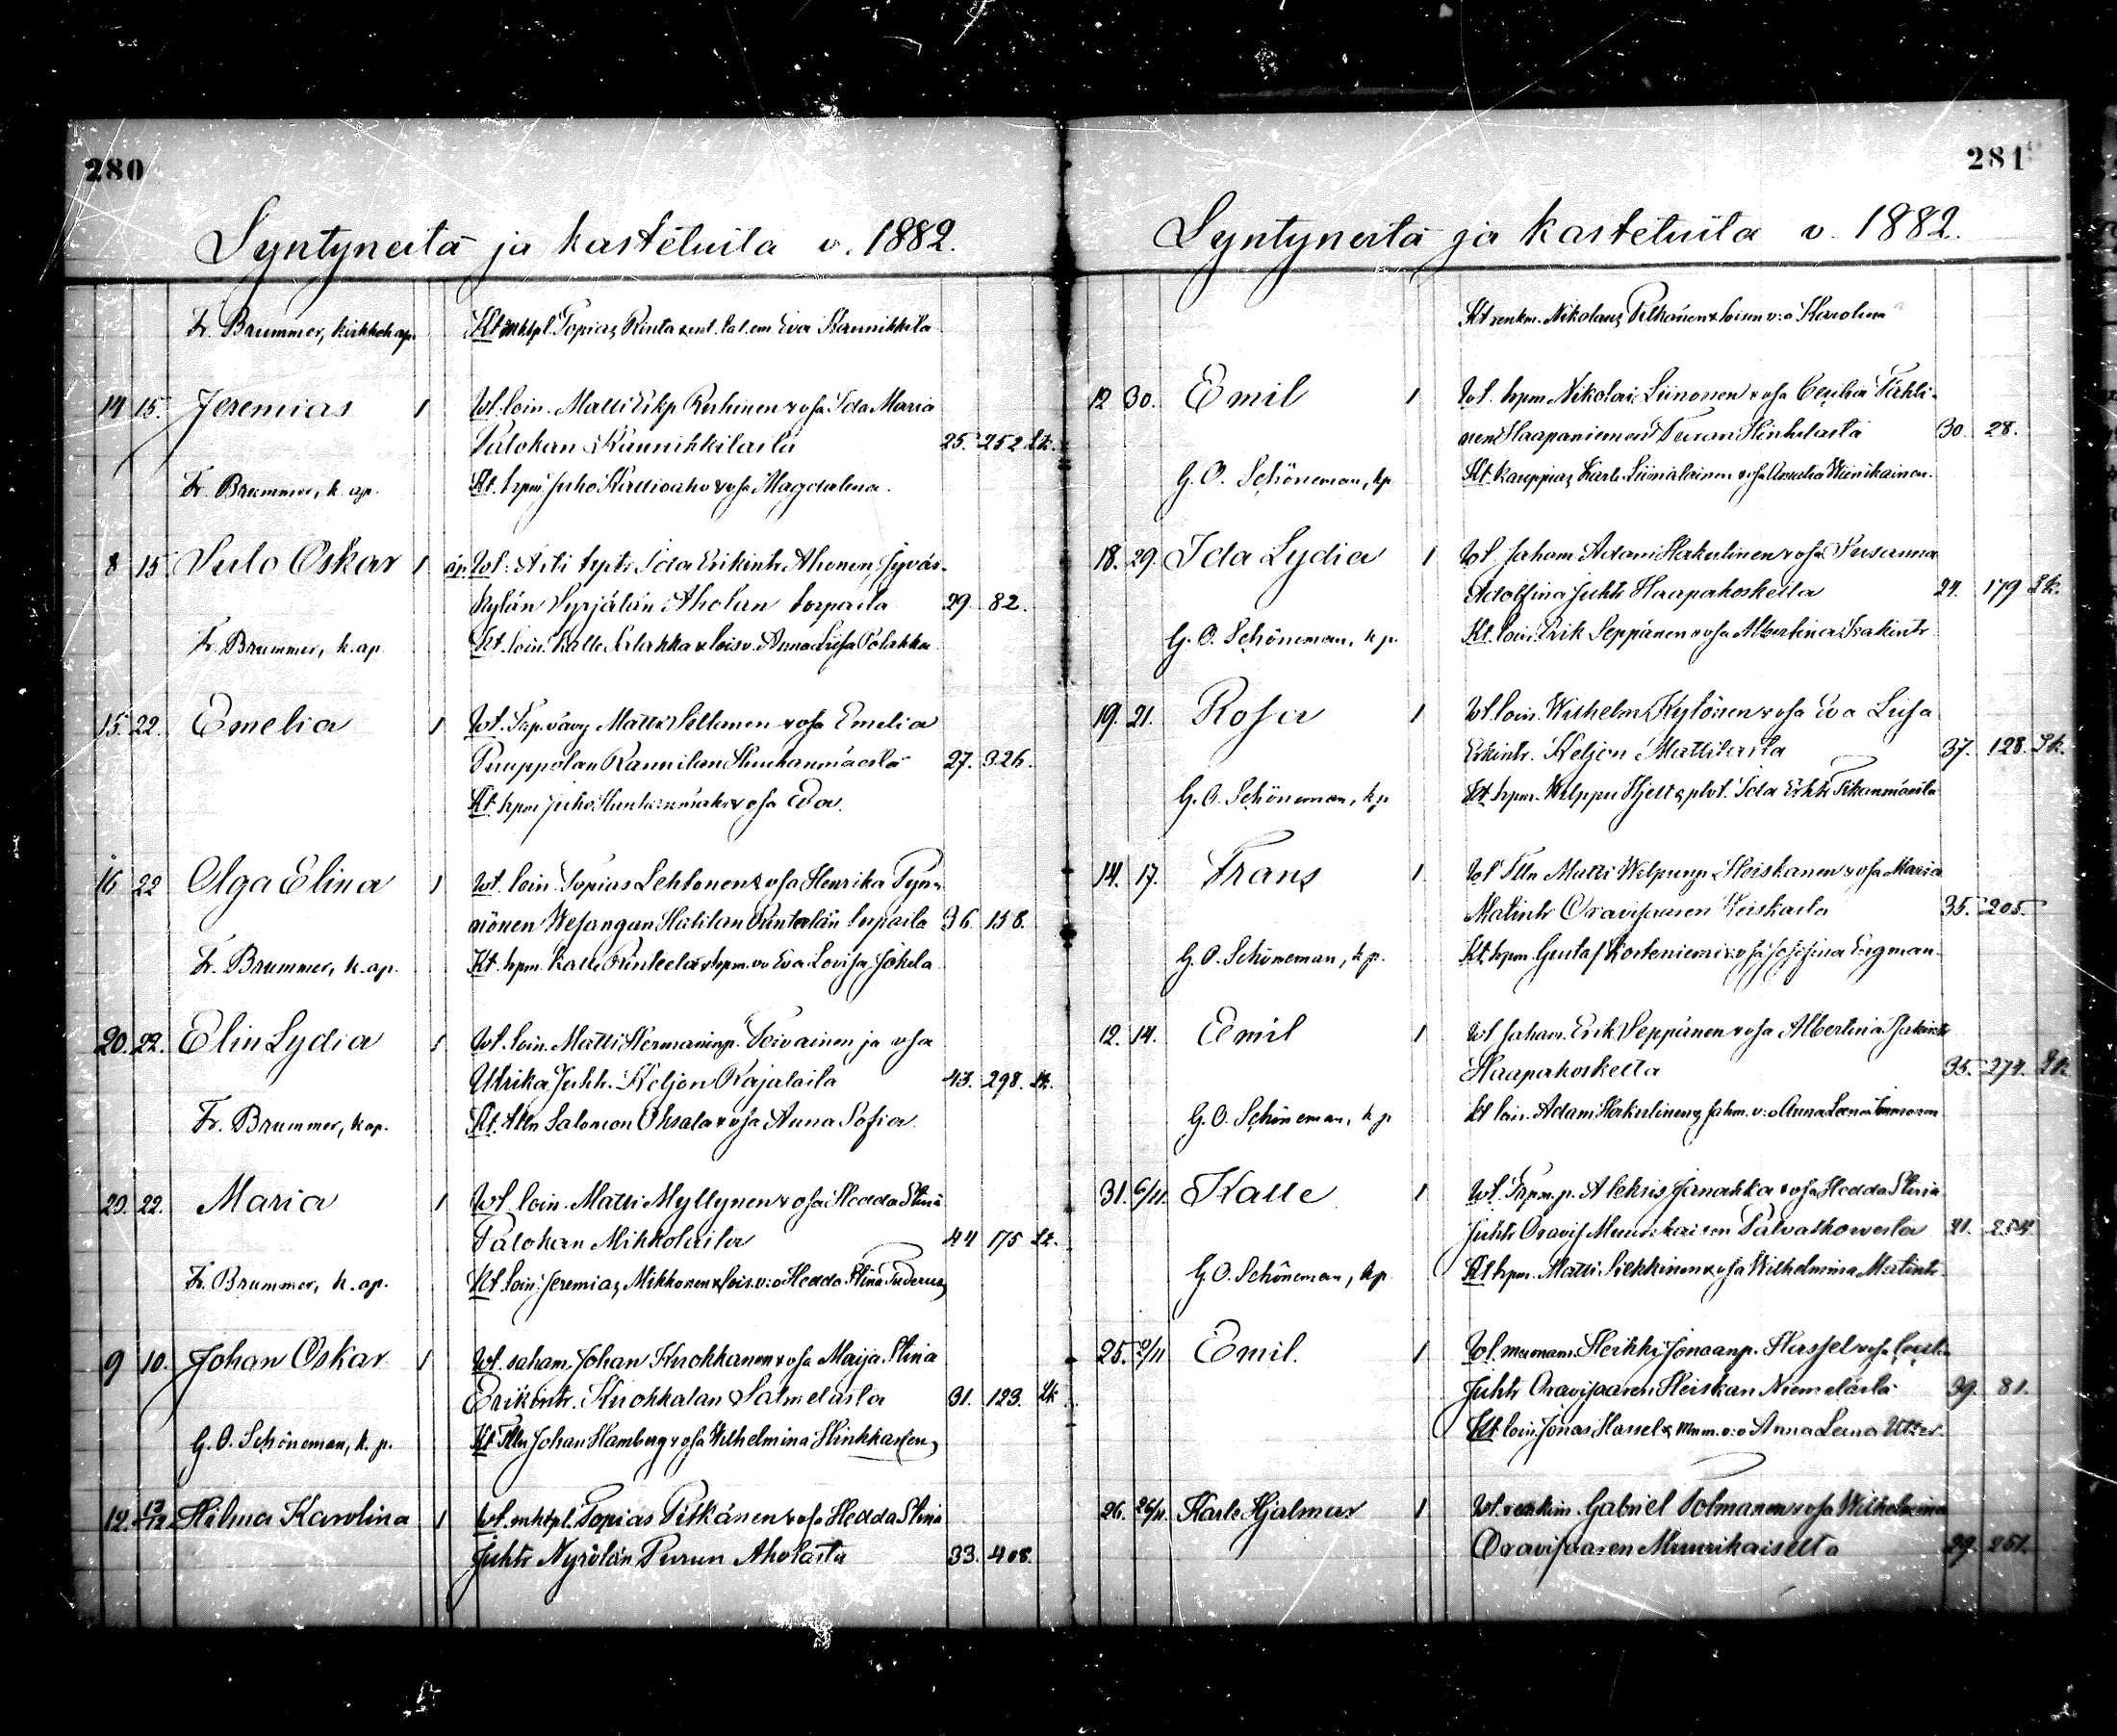 280
Syntyneitä ja kasteluita v. 1882.
Fr. Brummer, kirkkoh.ap. Kt mhtpl. Topias Rinta & ent. tal. em. Eva Kannikkila
14 15. Jeremias 1 Wt. loin. Matti Erkp Ruhinen & vsa Ida Maria
Palokan Kannikkilasta 25. 252 Lk.
Fr. Brummer, k. ap. Kt. hpm Juho Kallioaho & vsa Magdalena.
8 15 Sulo Oskar 1 äp. Wt. Äiti tyttö Ida Erikintr Ahonen, Jyväs-
kylän Syrjälän Aholan torpasta 29. 82.
Fr. Brummer, k. ap. Kt. loin. Kalle Polakka & lois v. Anna Liisa Polakka
15. 22. Emelia 1 Wt. Trp.vävy Matti Seltmen & vsa Emelia
Puuppolan Rannilan Huuhanmäestä 27. 326.
Kt hpm Juho Huuhanmäki & vsa Eva.
16 22 Olga Elina 1 Wt. loin. Topias Lehtonen & vsa Henrika Tyn-
nönen Wesangan Halilan Rintalan torpasta 36. 158.
Fr. Brummer, k. ap. Kt. hpm. Kalle Rintala & hpm. vo Eva Lovisa Jokela
20. 22. Elin Lydia 1 Wt. loin. Matti Hermaninp. Toivainen ja vsa
Ulrika Juhtr. Keljon Rajalasta 43. 298. Lk.
Fr. Brummer, k ap. Kt. tlln Salomon Oksala & vsa Anna Sofia
20. 22. Maria 1 Wt. loin. Matti Myllynen & vsa Hedda Stina
Palokan Mikkolasta 44 175 Lk.
Fr. Brummer, k. ap. Kt. loin. Jeremias Mikkonen & lois. v:o Hedda Stina Tuderus
9 10. Johan Oskar 1 Wt. saham. Johan Kuokkanen & vsa Maija Stina
Erikintr. Kuokkalan Salmelasta 31. 123. Lk
G. O. Schöneman, k. p. Kt Tlln Johan Hamberg & vsa Wilhelmina Hinkkanen
12. 13/12 Hilma Karolina 1 Wt. mhtpl. Topias Pitkänen & vsa Hedda Stina
Juhtr Nyrölän Purun Aholasta 33. 408.
281
Syntyneitä ja kasteluita v. 1882.
Kt renkm. Nikolaus Pitkänen & loisen v:o Karolina
12 30. Emil 1 Wt. hpm Nikolai Liinonen & vsa Cecilia Tähti-
nen Haapaniemen Teiran Hinkalasta 30. 28.
G. O. Schöneman, kp Kt. kauppias Karl Liimatainen & vsa Amalia Weinikainen.
18. 29. Ida Lydia 1 Wt. saham. Adam Hakulinen & vsa Susanna
Adolfina Juhtr Haapakoskelta 24. 179 Lk.
G. O. Schöneman, k p. Kt. loin. Erik Seppänen & vsa Albertina Isakintr
19. 21. Rosa 1 Wt loin. Wilhelm Kylönen & vsa Eva Liisa
Erkintr. Keljon Mattilasta 37. 128. Lk
G. O. Schöneman, k p Kt. hpm. Wilppu Hjelt & plvt. Ida Erktr Tikanmäestä
14. 17. Frans 1 Wt Tlln Matti Wilpunp. Heiskanen & vsa Maria
Matintr Oravisaaren Heiskasta 35. 205.
G. O. Schöneman, k p. Kt. hpm Gustaf Kosteniemi & vsa Josefina Engman
12. 14. Emil 1 Wt saham. Erik Seppänen & vsa Albertina Isakintr
Haapakoskelta 35. 274. Lk
G. O. Schöneman, k p Kt loin. Adam Hakulinen & sahm. v:o Anna Leena
31. 6/11. Kalle 1 Wt. Trpm. p. Aleksis Janakka & vsa Hedda Stina
Juhtr Oravis Muurikaisen Salvatkowesta 21. 254.
G. O. Schöneman, kp. Kt hpm. Matti Siekkinen & vsa Wilhelmina Matintr
25. 2/11 Emil. 1 Wt. muonam. Heikki Jonaanp. Hassel & vsa Cecilia
Juhtr Oravisaaren Heiskan Niemelästä 39. 81.
Kt loin Jonas Hassel & Mnm. v:o Anna Leena Utter
26. 26/11. Karle Hjalmar 1 Wt. renkim. Gabriel Tolmanen & vsa Wilhelmina
Oravisaaren Muurikaiselta 29. 251.